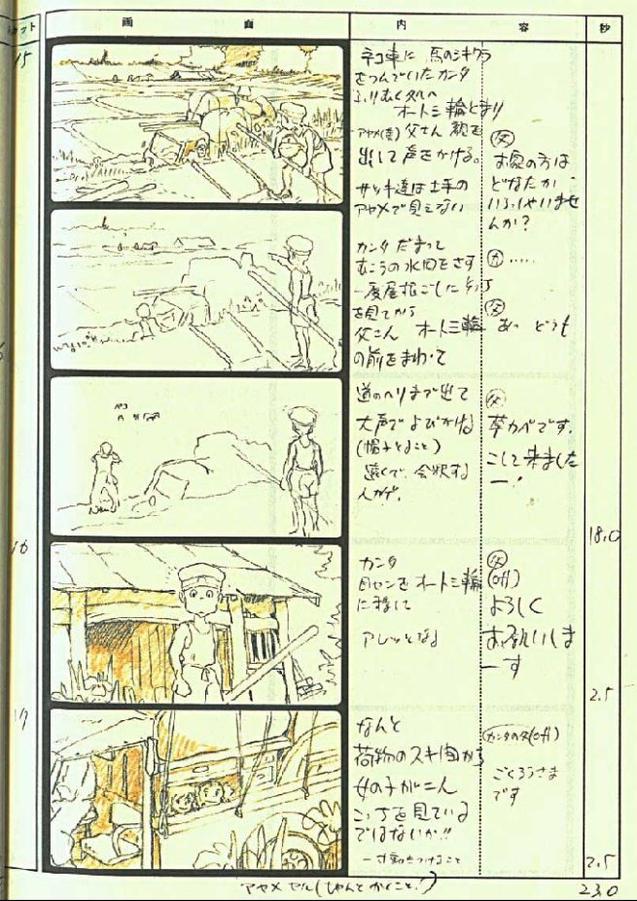 カット
画面
内容
秒
15
ネコ車に 馬のシキワラ
をつんでいたカンタ
ふりむく処へ
オート三輪とまり
父さん 顔を
出して声をかける。
サツキ達は土手の
アヤメで見えない
父
お家の方は
どなたか
いらっしゃいませ
んか?
カンタ だまって
むこうの水田をさす
を見てから
父さん オート三輪
の前をまわって
カ .....
父
あっ どうも
道のヘリまで出て
大声でよびかける
(帽子とること)
遠くで、会釈する
人かげ。
父
草カベです。
こして来ました
ー!
18.0
16
カンタ
目センをオート三輪
に移して
アレッとなる
父
(off)
よろしく
お願いしま
ーす
2.5
17
なんと
荷物のスキ間から
女の子が二人
こっちを見ている
ではないか!!
カンタの父(off)
ごくろうさま
です
2.5
アヤメ セル(ちゃんとかくこと!)
23.0